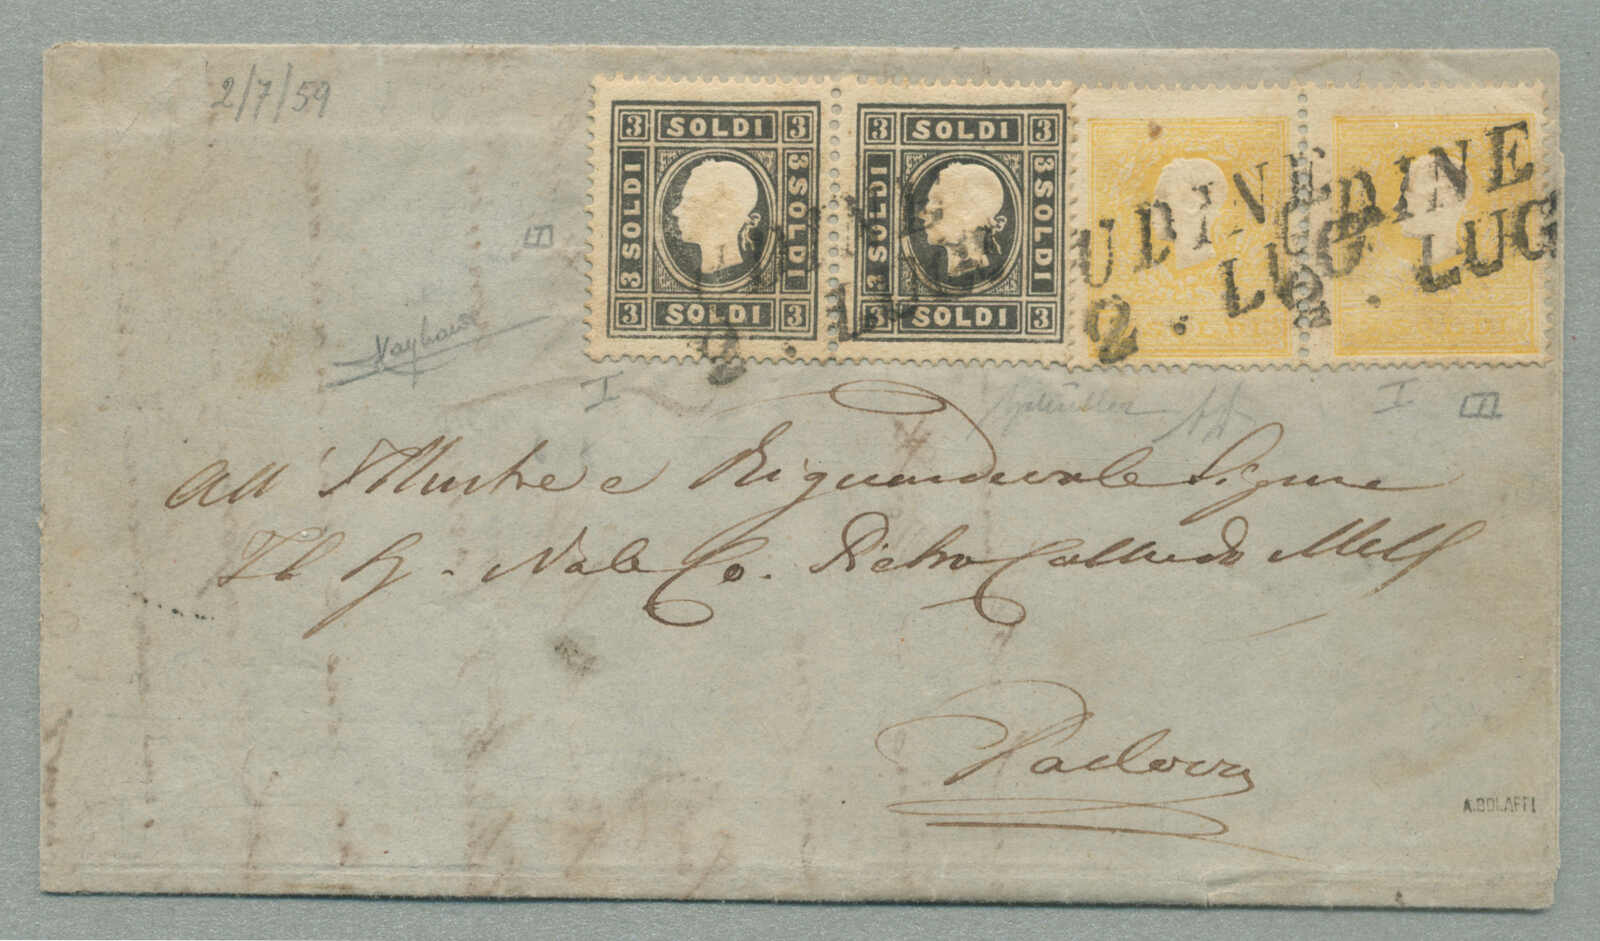 2/7/59
3 SOLDI 3 3 SOLDI 3
3 SOLDI 3 SOLDI 3 SOLDI 3 SOLDI
3 SOLDI 3 3 SOLDI 3
UDINE
2. LUG
UDINE
2. LUG
UDINE
2. LUG
I
I
All' Illustre e Riguardevole Signore
Nob Co. Pietro Colloredo Mels
Padova
A.BOLAFFI